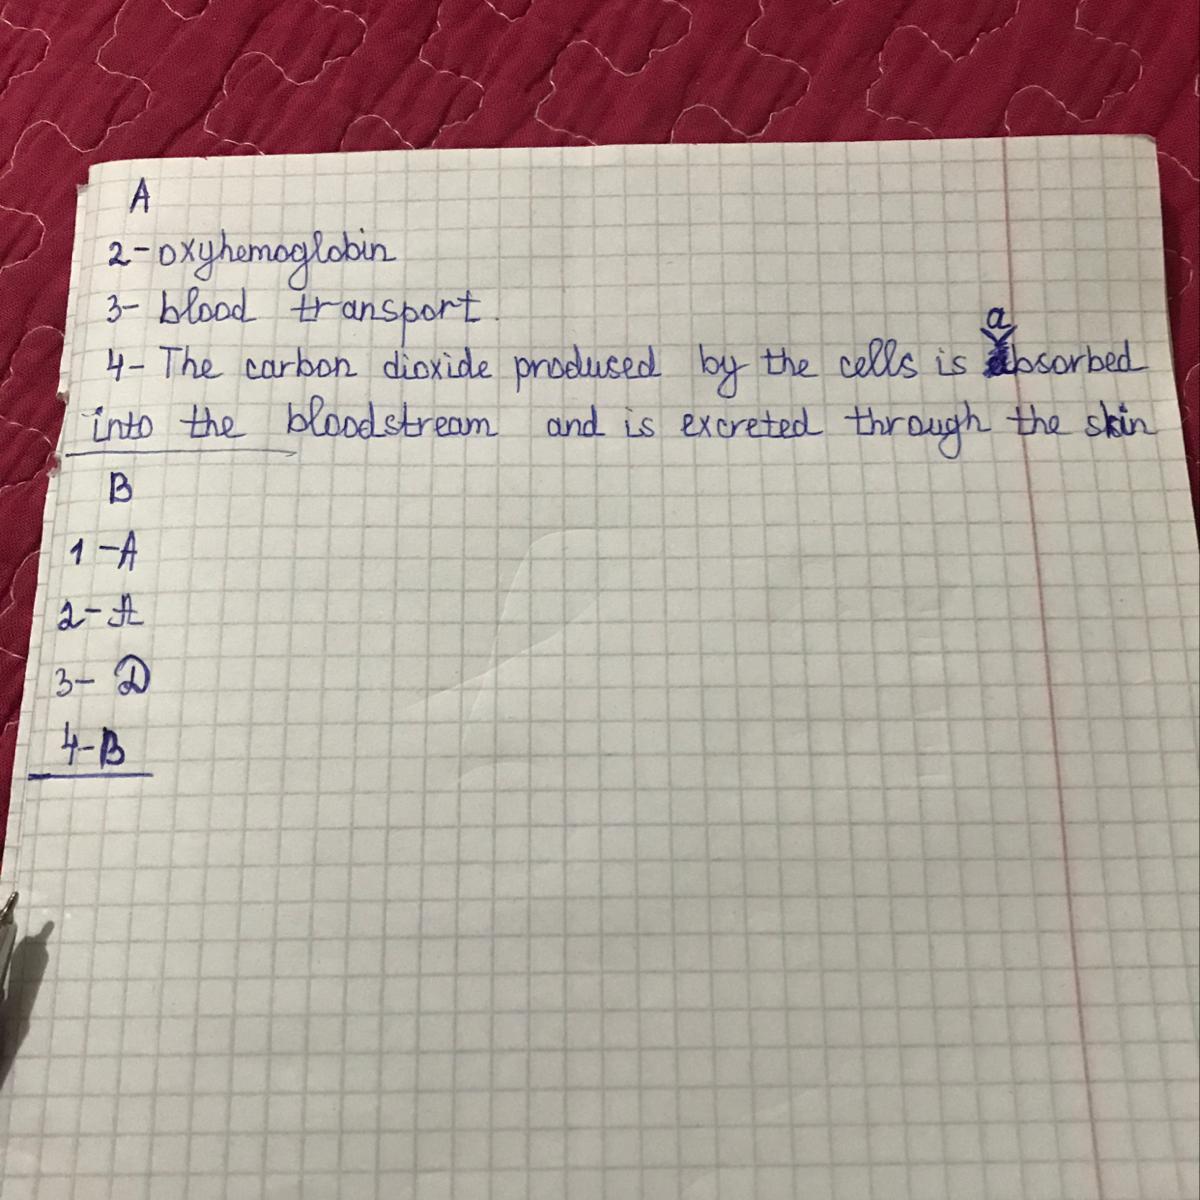 A
2- oxyhemoglobin
3- blood transport.
a
4- The carbon dioxide prodused by the cells is absorbed
into the bloodstream and is excreted through the skin
B
1 - A
2 - A
3 - D
4 - B